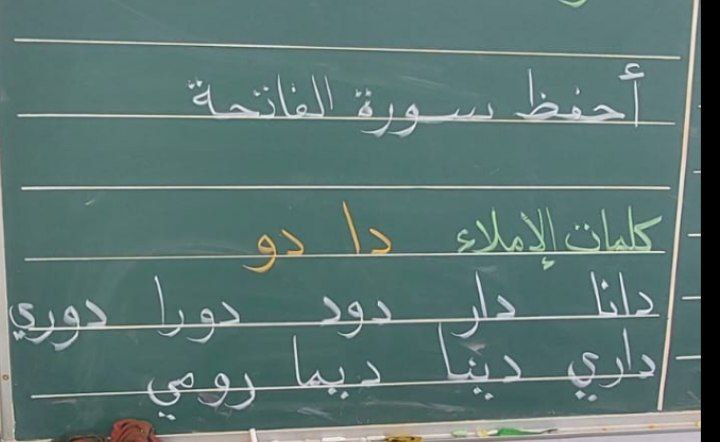 أحفظ سورة الفاتحة
كلمات الإملاء دا دو
دانا دار دود دورا دوري
داري دينا ديما رومي